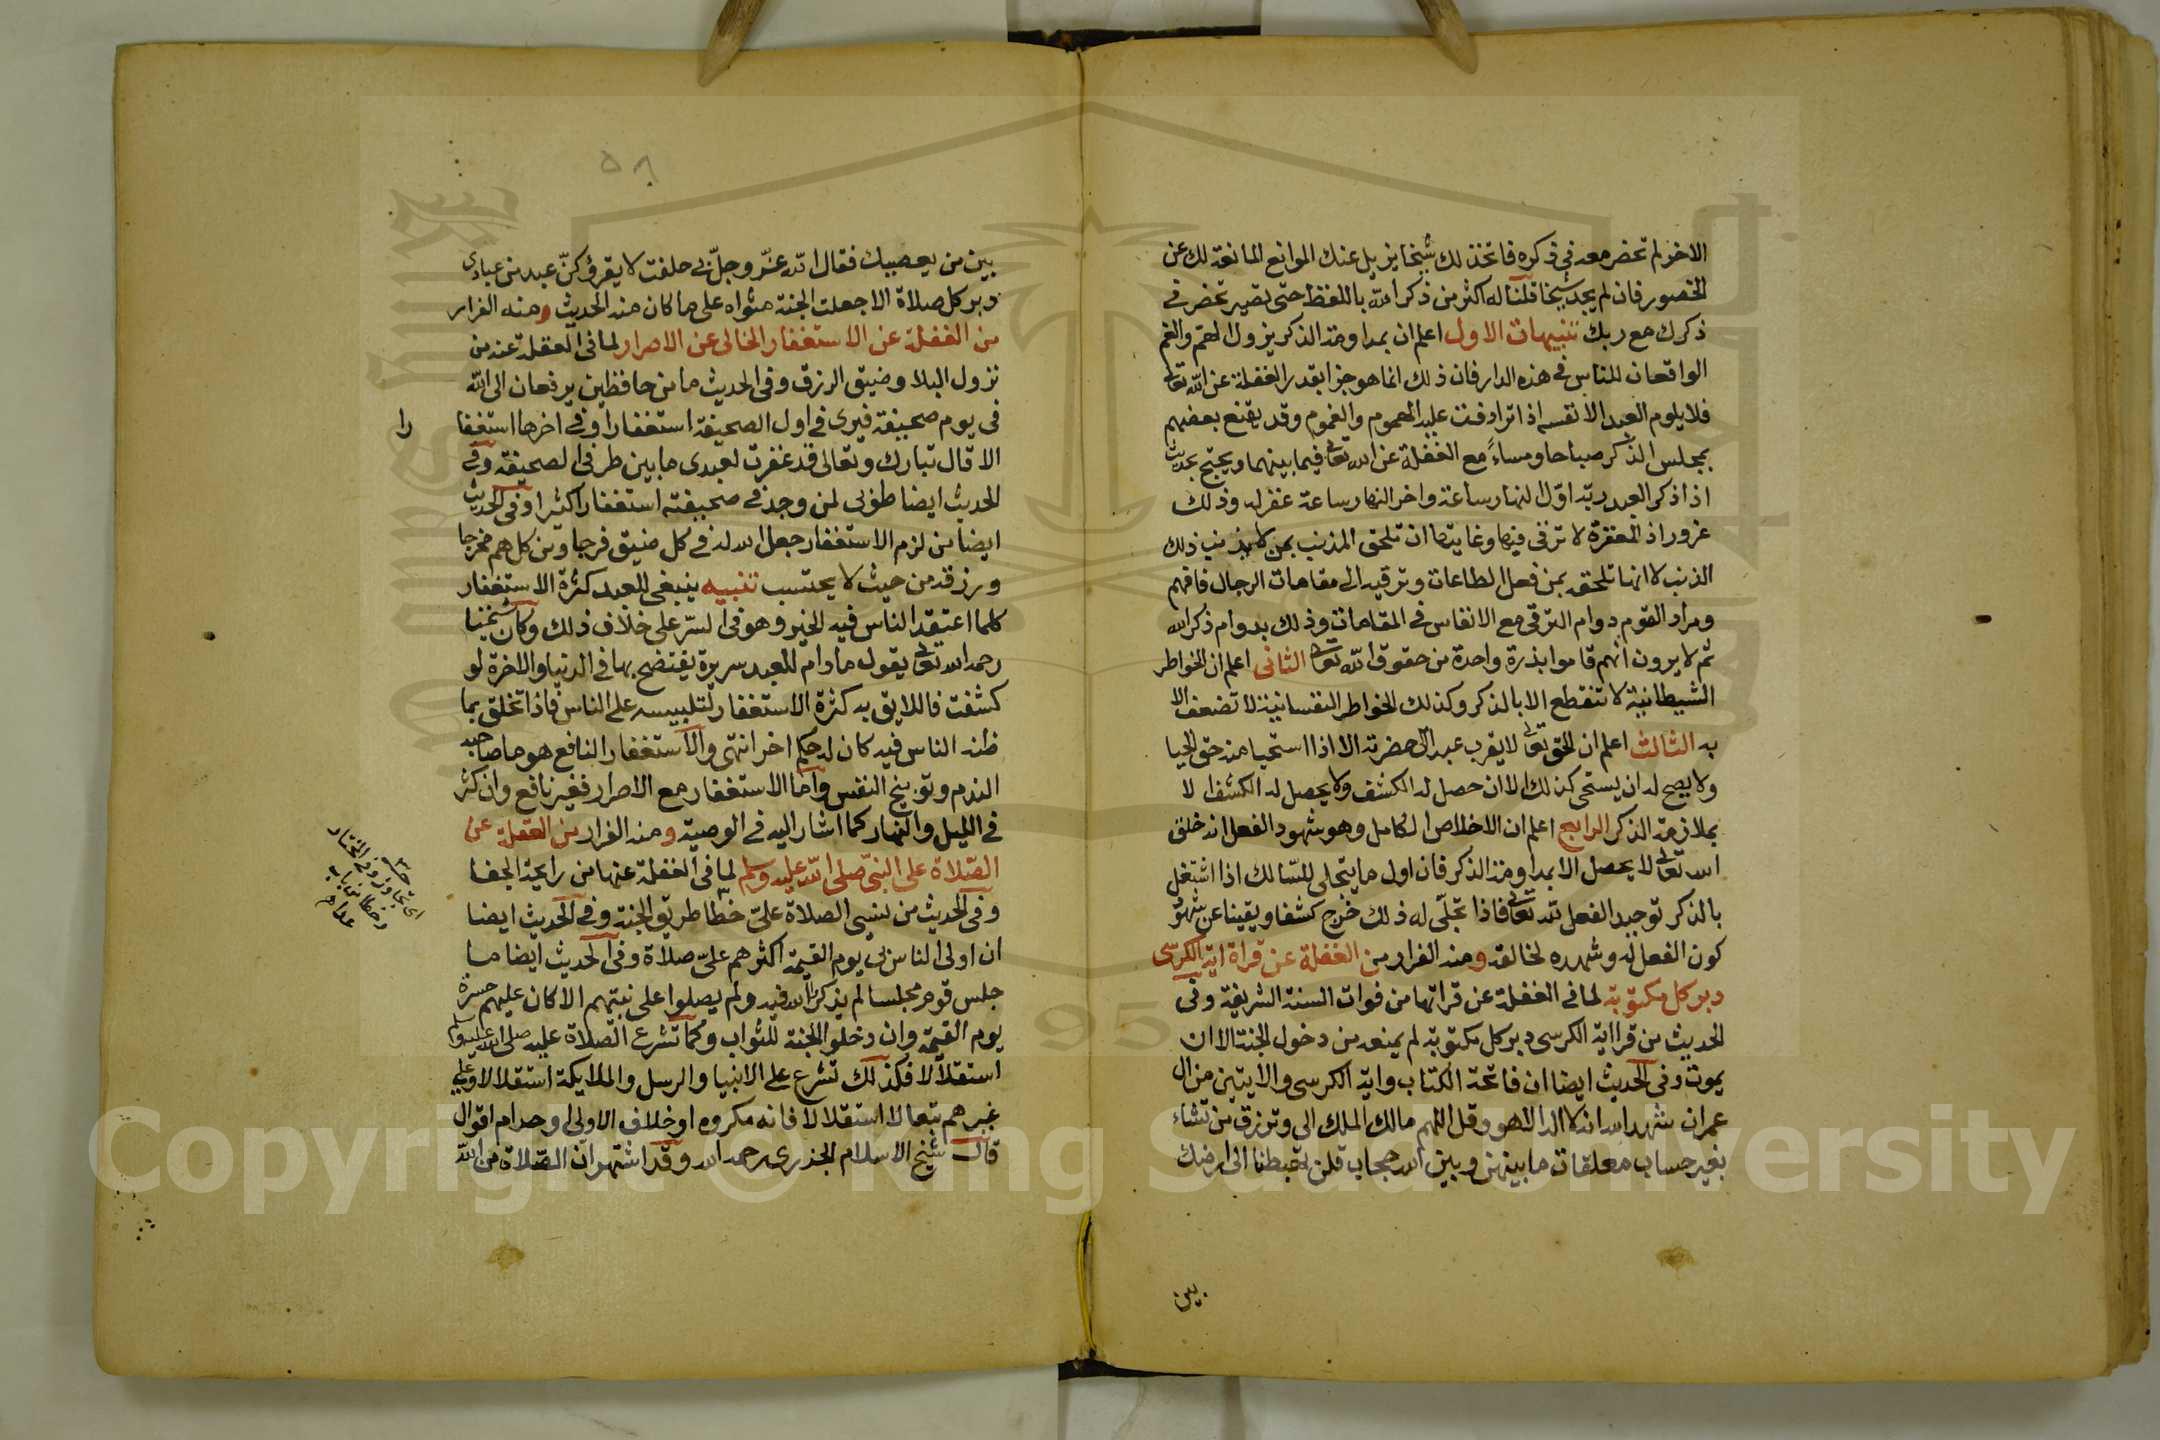 الاخر لم تحضر معه في ذكره فاتخذ لك شيخا يزيل عنك الموانع المانعة لك عن
الحضور فان لم يجد شيخا قلنا له اكثر من ذكر الله باللفظ حتى تصير تحضر في
ذكرك مع ربك تنبيهات الاول اعلم ان بمداومة الذكر يزول الهم والغم
الواقعان للناس في هذه الدار فان ذلك انما هو جزا بقدر الغفلة عن الله تعالى
فلا يلوم العبد الا نفسه اذا ترادفت عليه الهموم والغموم وقد يقنع بعضهم
بمجلس الذكر صباحا ومساءً مع الغفلة عن الله تعالى فيما بينهما ويحتج بحديث
اذا ذكر العبد ربه اول النهار ساعة واخر النهار ساعة غفر له وذلك
غرور اذ المغفرة لا ترقى فيها وغايتها ان تلحق المذنب بمن لا يذنب ذلك
الذنب لا انها تلحقه بمن فعل الطاعات وترقيه الى مقامات الرجال فافهم
ومراد القوم دوام الترقي مع الانفاس في المقامات وذلك بدوام ذكر الله
ثم لا يرون انهم قاموا بذرة واحدة من حقوق الله تعالى الثاني اعلم ان الخواطر
الشيطانية لا تنقطع الا بالذكر وكذلك الخواطر النفسانية لا تضعف الا
به الثالث اعلم ان الحق تعالى لا يقرب عبدا الى حضرته الا اذا استحيا منه حق الحيا
ولا يصح له ان يستحي كذلك الا ان حصل له الكشف ولا يحصل له الكشف الا
بملازمة الذكر الرابع اعلم ان الاخلاص الكامل وهو شهود الفعل انه خلق
الله تعالى لا يحصل الا بمداومة الذكر فان اول ما يتجلى للسالك اذا اشتغل
بالذكر توحيد الفعل لله تعالى فاذا تجلّى له ذلك خرج كشفا ويقينا عن شهود
كون الفعل له وشهده لخالقه ومنه الفرار من الغفلة عن قراة اية الكرسى
دبر كل مكتوبة لما في الغفلة عن قراتها من فوات السنة الشريفة وفي
الحديث من قرا اية الكرسى دبر كل مكتوبة لم يمنعه من دخول الجنة الا ان
يموت وفي الحديث ايضا ان فاتحة الكتاب واية الكرسي والايتين من ال
عمران شهد الله انه لا اله الا هو وقل اللهم مالك الملك الى وترزق من تشاء
بغير حساب معلقات ما بينهن وبين الله حجاب قلن تهبطنا الى ارضك
بين
٥٨
بين من يعصيك فقال الله عز وجل بي حلفت لا يقروكن عبد من عبادي
دبر كل صلاة الا جعلت الجنة مثواه على ما كان منه الحديث ومنه الفرار
من الغفلة عن الاستغفار الخالى عن الاصرار لما في الغفلة عنه من
نزول البلا وضيق الرزق وفي الحديث ما من حافظين يرفعان الى الله
في يوم صحيفة فيرى في اول الصحيفة استغفارا وفي اخرها استغفا
را
الا قال تبارك وتعالى قد غفرت لعبدى ما بين طرفي الصحيفة وفي
الحديث ايضا طوبى لمن وجد في صحيفته استغفارا كثيرا وفي الحديث
ايضا من لزم الاستغفار جعل الله له في كل ضيق فرجا ومن كل هم مخرجا
ورزقه من حيث لا يحتسب تنبيه ينبغي للعبد كثرة الاستغفار
كلما اعتقد الناس فيه الخير وهو في السر على خلاف ذلك وكان شيخنا
رحمه الله تعالى يقول ما دام للعبد سريرة يفتضح بها في الدنيا والاخرة لو
كشفت فاللايق به كثرة الاستغفار لتلبيسه على الناس فاذا تخلق بما
ظنه الناس فيه كان له حكم اخر انتهى والاستغفار النافع هو ما صاحبه
الندم وتوبيخ النفس واما الاستغفار مع الاصرار فغير نافع وان كثر
في الليل والنهار كما اشار اليه في الوصية ومنه الفرار من الغفلة عن
الصلاة على النبي صلى الله عليه وسلم لما في الغفلة عنها من رايحة الجفا
وفي الحديث من نسي الصلاة عليّ خطا طريق الجنة وفي الحديث ايضا
ان اولى الناس بي يوم القيمة اكثرهم عليّ صلاة وفي الحديث ايضا ما
جلس قوم مجلسا لم يذكروا الله فيه ولم يصلوا على نبيهم الا كان عليهم حسرة
يوم القيمة وان دخلوا الجنة للثواب وكما تشرع الصلاة عليه صلى الله عليه وسلم
استقلالا فكذلك تشرع على الانبيا والرسل والملايكة استقلالا وعلى
غيرهم تبعا لا استقلالا فانه مكروه او خلاف الاولى او حرام اقوال
قال شيخ الاسلام الجزري رحمه الله وقد اشتهر ان الصلاة من الله
Copyright © King Saud University